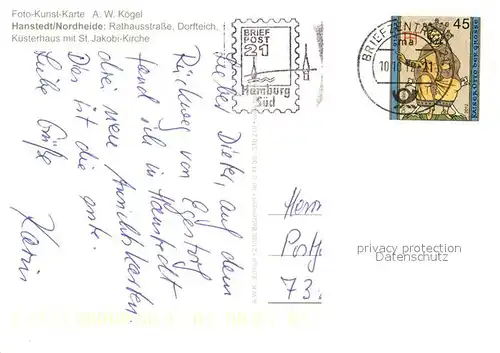 Foto-Kunst-Karte A. W. Kögel
Hanstedt/Nordheide: Rathausstraße, Dorfteich,
Küsterhaus mit St. Jakobi-Kirche
BRIEF
POST
21
Hamburg
Süd
BRIEFZENTRUM
10.10.12
45
Lieber Dieter, auf dem
Rückweg von Egestorf
fand ich in Hanstedt
drei neue Ansichtskarten.
Das ist die erste.
Liebe Grüße
Karin
Herrn
Postf
73
privacy protection
Datenschutz